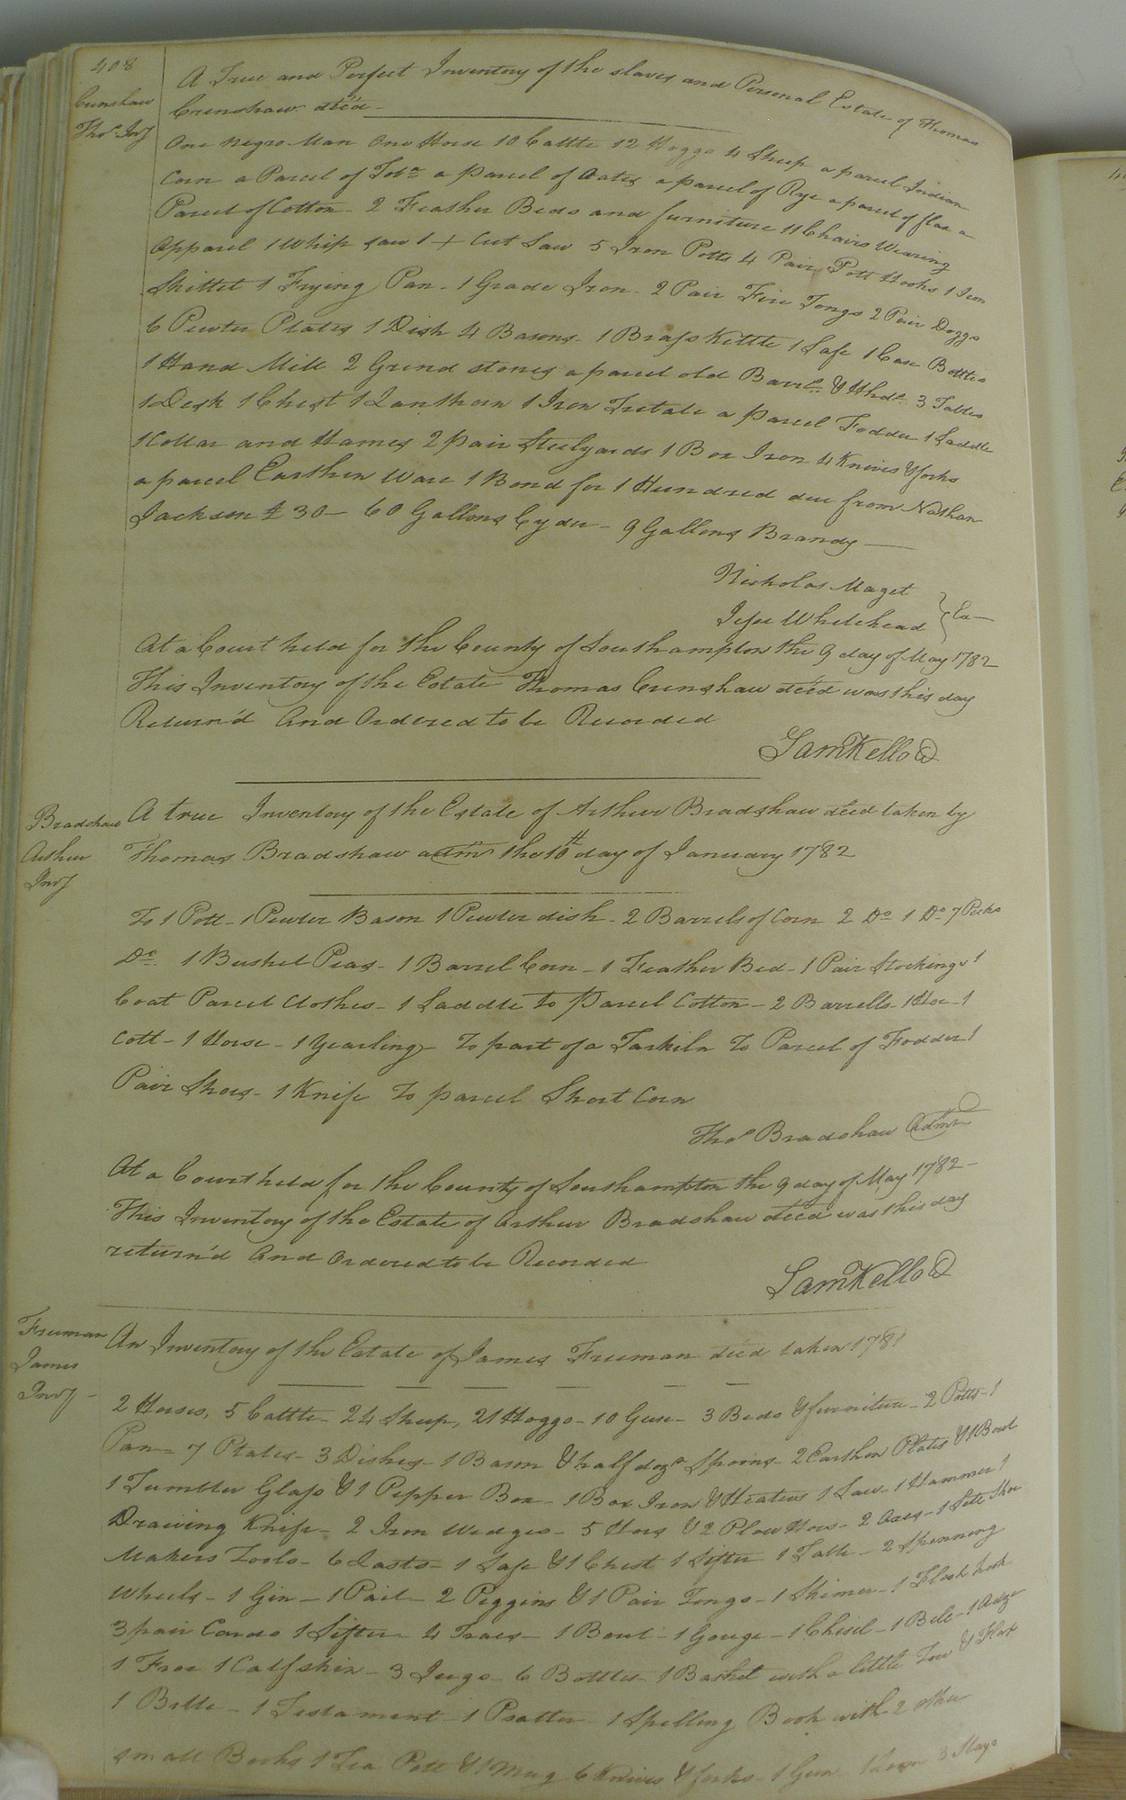 408
Crenshaw
Thos Invy
A True and Perfect Inventory of the slaves and Personal Estate of Thomas
Crenshaw dec'd
One negro Man One Horse 10 Cattle 12 Hoggs 4 Sheep a parcel Indian
Corn a Parcel of Tobo a parcel of Oates a parcel of Rye a parcel of flax a
Parcel of Cotton - 2 Feather Beds and furniture 11 Chairs Wearing
Apparel 1 Whip saw 1 + Cut Saw 5 Iron Potts 4 Pair Pott Hooks 1 Iron
Skillet 1 Frying Pan - 1 Grade Iron - 2 Pair Fire Tongs 2 Pair Doggs
6 Pewter Plates 1 Dish 4 Basons - 1 Brass Kettle 1 Safe 1 Case Bottles
1 Hand Mill 2 Grind stones a parcel old Barrls & Hhds 3 Tables
1 Desk 1 Chest 1 Lanthorn 1 Iron a Parcel Fodder 1 Saddle
1 Collar and Hames 2 pair Steelyards 1 Box Iron 4 Knives & forks
a parcel Earthen Ware 1 Bond for 1 Hundred due from Nathan
Jackson £ 30 - 60 Gallons Cyder - 9 Gallons Brandy
Nicholas Maget
Jesse Whitehead } Ex
At a Court held for the County of Southampton the 9 day of May 1782
This Inventory of the Estate Thomas Crenshaw dec'd was this day
Return'd And Ordered to be Recorded
Sam Kello
Bradshaw
Arthur
Invy
A true Inventory of the Estate of Arthur Bradshaw dec'd taken by
Thomas Bradshaw adm the 10th day of January 1782
To 1 Pott - 1 Pewter Bason 1 Pewter dish - 2 Barrels of Corn 2 Do 1 Do 7 Pecks
Do 1 Bushel Peas - 1 Barrel Corn - 1 Feather Bed - 1 Pair Stockings 1
Coat Parcel Clothes - 1 Saddle to Parcel Cotton - 2 Barrells - 1 Hoe - 1
Colt - 1 Horse - 1 Yearling To part of a Tarkiln To Parcel of Fodder 1
Pair Shoes - 1 Knife To parcel Short Corn
Thos Bradshaw Admr
At a Court held for the County of Southampton the 9 day of May 1782 -
This Inventory of the Estate of Arthur Bradshaw dec'd was this day
return'd And Ordered to be Recorded
Sam Kello
Freeman
James
Invy -
An Inventory of the Estate of James Freeman dec'd taken 1781
2 Horses, 5 Cattle - 24 Sheep, 21 Hoggs - 10 Geese - 3 Beds & furniture - 2 Potts - 1
Pan - 7 Plates - 3 Dishes - 1 Bason & half dozn Spoons - 2 Earthen Plates & 1 Bowl
1 Tumbler Glass & 1 Pepper Box - 1 Box Iron & Heaters 1 Saw - 1 Hammer 1
Drawing Knife - 2 Iron Wedges - 5 Hoes & 2 Plow Hoes - 2 Axes - 1 Sett Shoe
Makers Tools - 6 Lasts - 1 Safe & 1 Chest 1 Sifter 1 Table - 2 Spinning
Wheels - 1 Gin - 1 Pail - 2 Piggins & 1 Pair Tongs - 1 Skimer - 1 Flesh hook
3 pair Cards 1 Sifter 4 Trays - 1 Bowl - 1 Gouge - 1 Chisel - 1 Bell - 1 Adze
1 Froe 1 Calf skin - 3 Jugs - 6 Bottles - 1 Basket with a little Tow & Flax
1 Bible - 1 Testament - 1 Psalter - 1 Spelling Book with 2 other
small Books 1 Tea Pott & 1 Mug 6 Knives & forks - 1 Gun 3 Slays